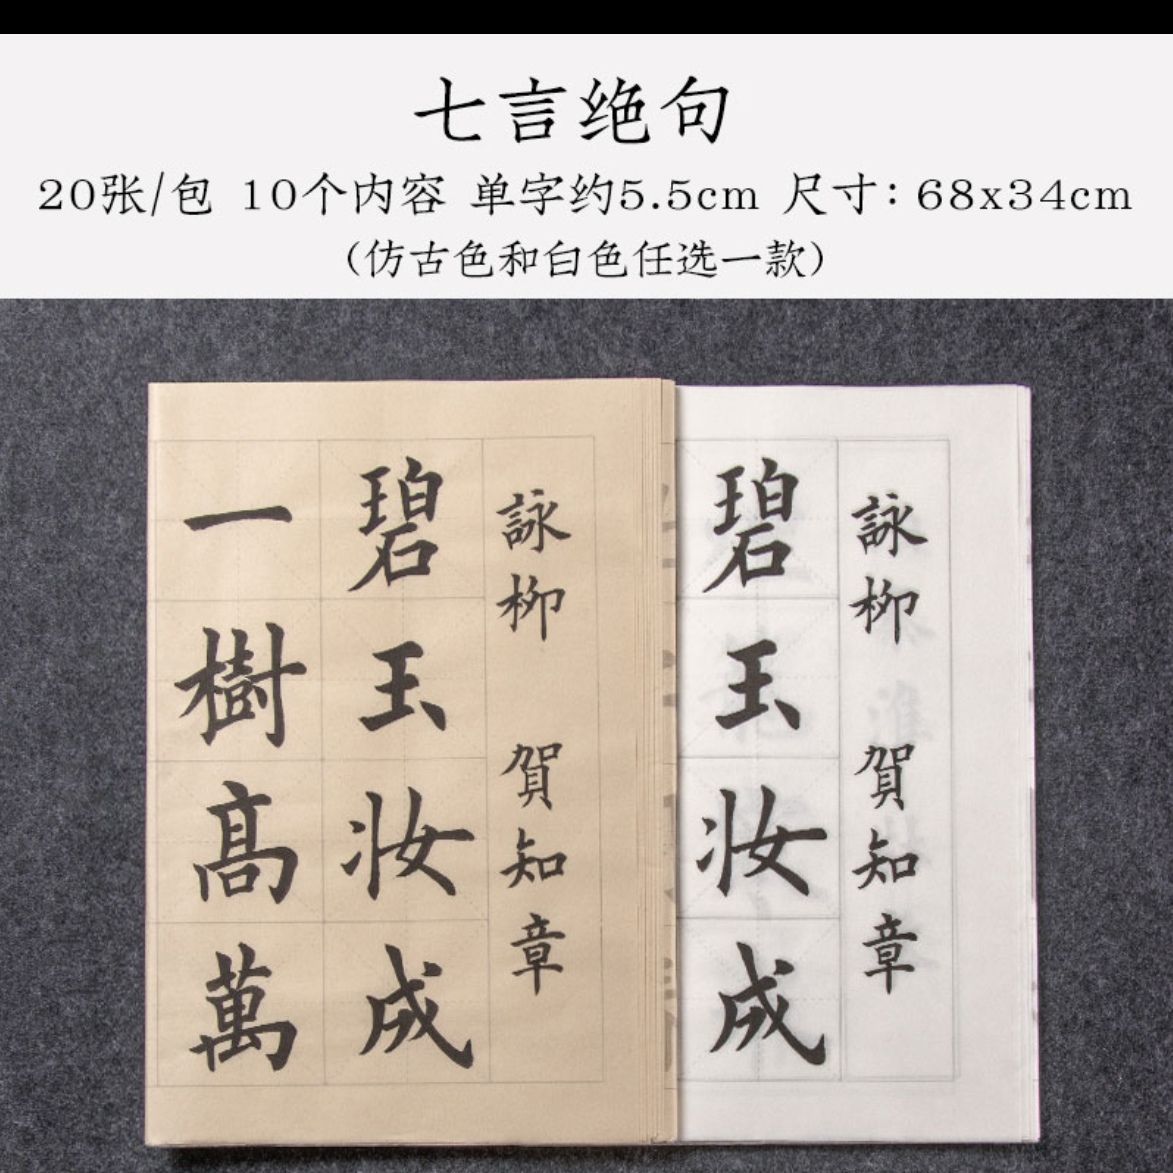 七言绝句
20张/包 10个内容 单字约5.5cm 尺寸：68x34cm
(仿古色和白色任选一款)
詠柳 賀知章
碧玉妝成
一樹高萬
詠柳 賀知章
碧玉妝成